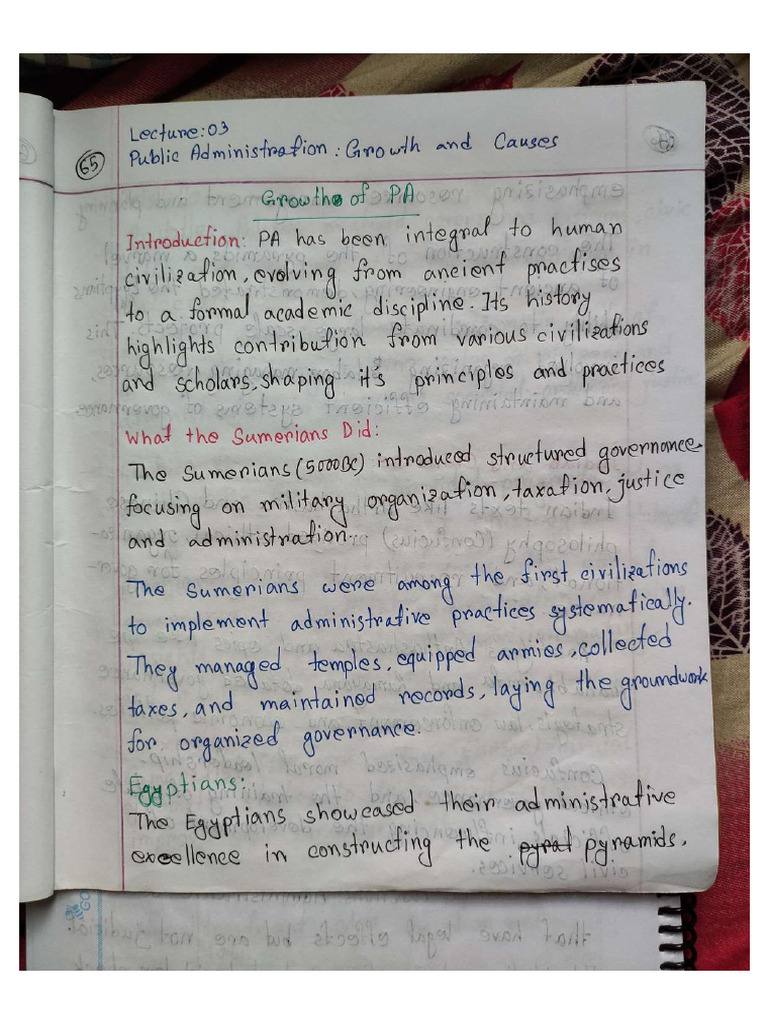 Lecture:03
65
Public Administration: Growth and Causes
Growth of PA
Introduction: PA has been integral to human
civilization, evolving from ancient practises
to a formal academic discipline. Its history
highlights contribution from various civilizations
and scholars, shaping it's principles and practices
What the Sumerians Did:
The Sumerians (5000BC) introduced structured governance
focusing on military organization, taxation, justice
and administration.
The Sumerians were among the first civilizations
to implement administrative practices systematically.
They managed temples, equipped armies, collected
taxes, and maintained records, laying the groundwork
for organized governance.
Egyptians:
The Egyptians showcased their administrative
excellence in constructing the pyral pyramids.
that have legal effects but are not judicial